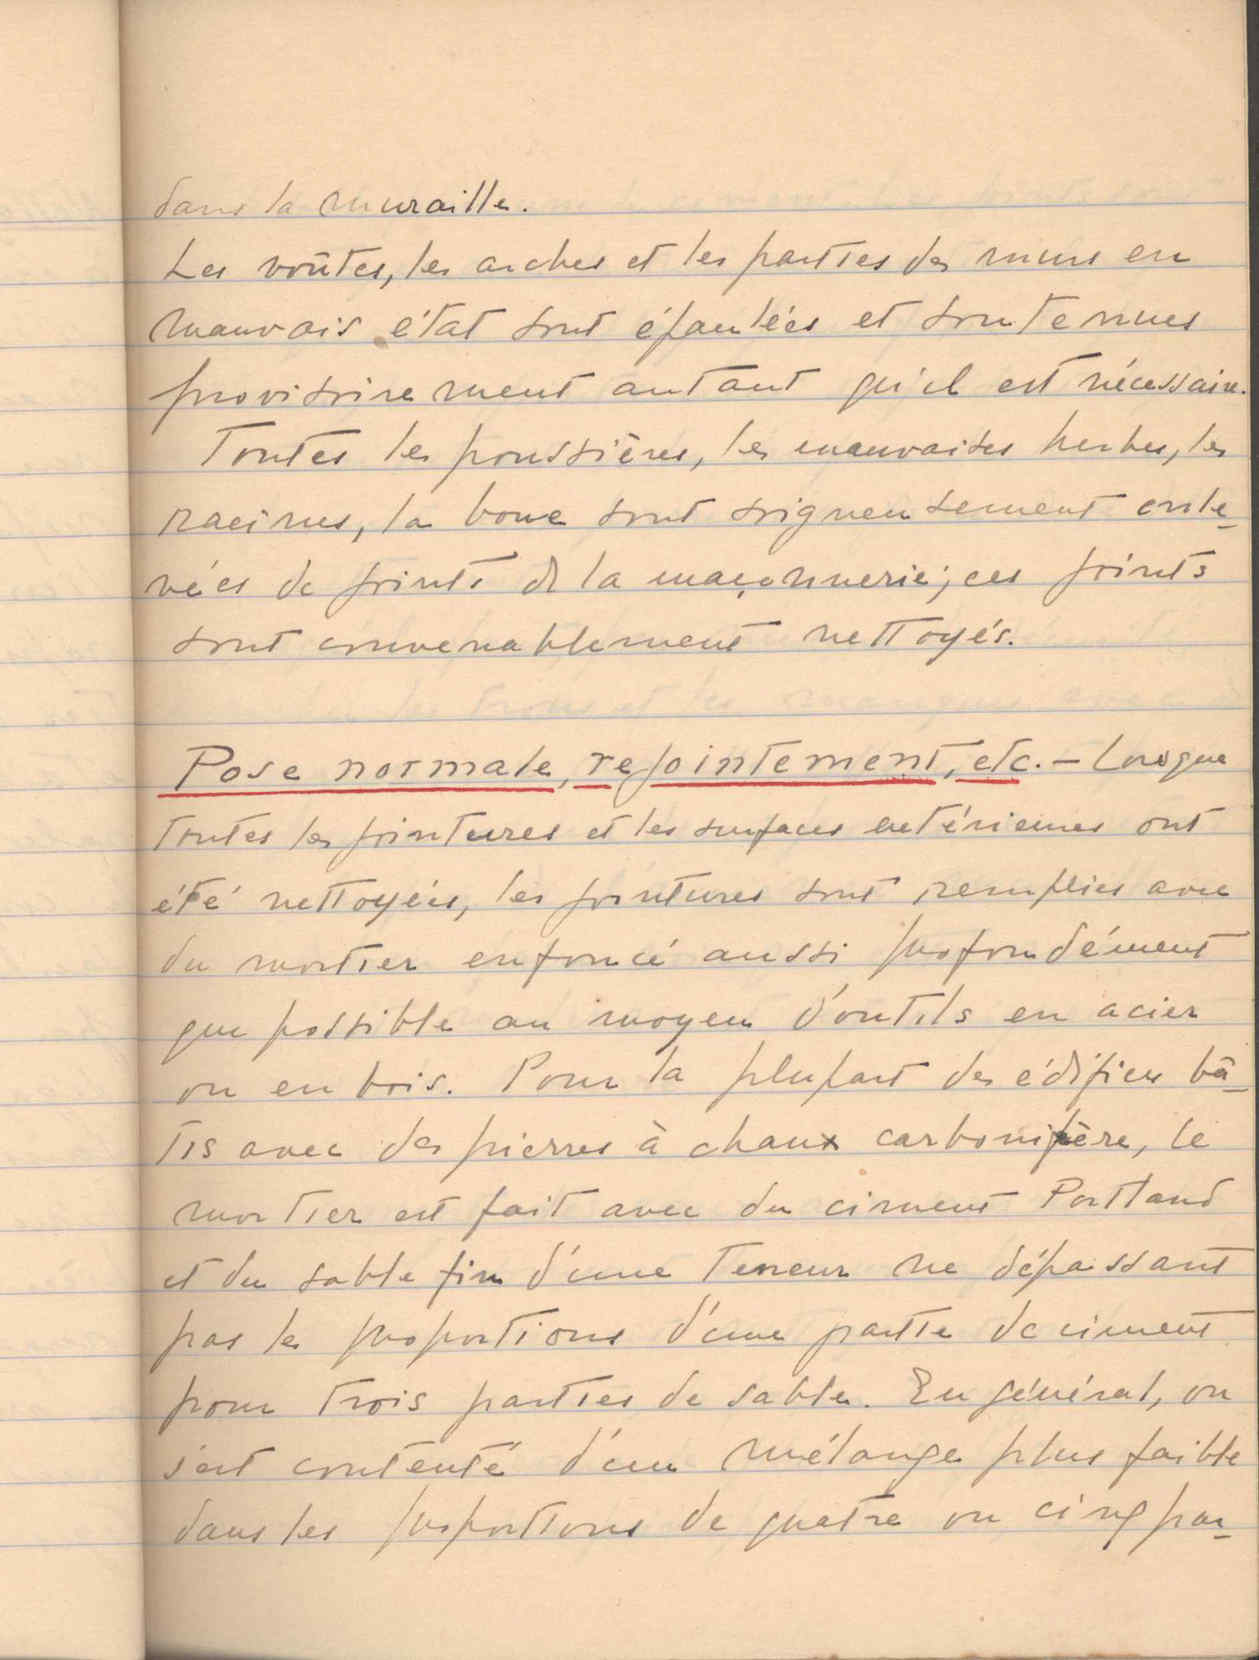 dans la muraille.
Les voûtes, les arches et les parties des murs en
mauvais état sont épaulées et soutenues
provisoirement autant qu'il est nécessaire.
Toutes les poussières, les mauvaises herbes, les
racines, la boue sont soigneusement enle-
vées de joints de la maçonnerie; ces joints
sont convenablement nettoyés.
Pose normale, rejointement, etc. - Lorsque
toutes les jointures et les surfaces extérieures ont
été nettoyées, les jointures sont remplies avec
du mortier enfoncé aussi profondément
que possible au moyen d'outils en acier
ou en bois. Pour la plupart des édifices bâ-
tis avec des pierres à chaux carbonifère, le
mortier est fait avec du ciment Portland
et du sable fin d'une teneur ne dépassant
pas les proportions d'une partie de ciment
pour trois parties de sable. En général, on
s'est contenté d'un mélange plus faible
dans les proportions de quatre ou cinq par-